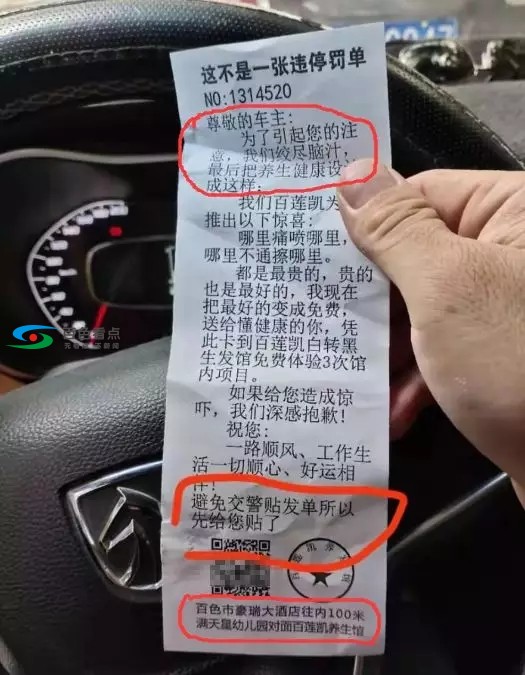 这不是一张违停罚单
NO:1314520
尊敬的车主:
为了引起您的注
意,我们绞尽脑汁,
最后把养生健康设
成这样:
我们百莲凯为
推出以下惊喜:
哪里痛喷哪里,
哪里不通擦哪里。
都是最贵的,贵的
也是最好的,我现在
把最好的变成免费,
送给懂健康的你,凭
此卡到百莲凯白转黑
生发馆免费体验3次馆
内项目。
如果给您造成惊
吓,我们深感抱歉!
祝您:
一路顺风、工作生
活一切顺心、好运相
伴!
避免交警贴发单所以
先给您贴了
百色市豪瑞大酒店往内100米
满天星幼儿园对面百莲凯养生馆
百色看点